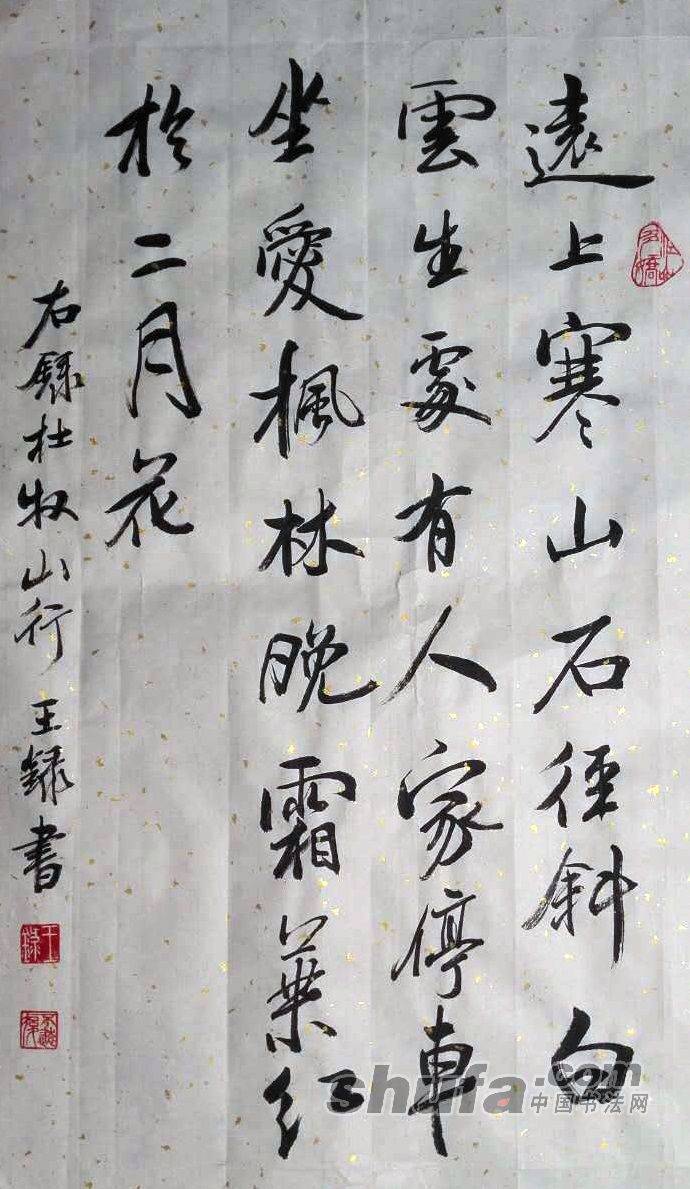 遠上寒山石徑斜白
雲生處有人家停車
坐愛楓林晚霜葉紅
於二月花
右録杜牧山行 王録書
shufa.com
中国书法网